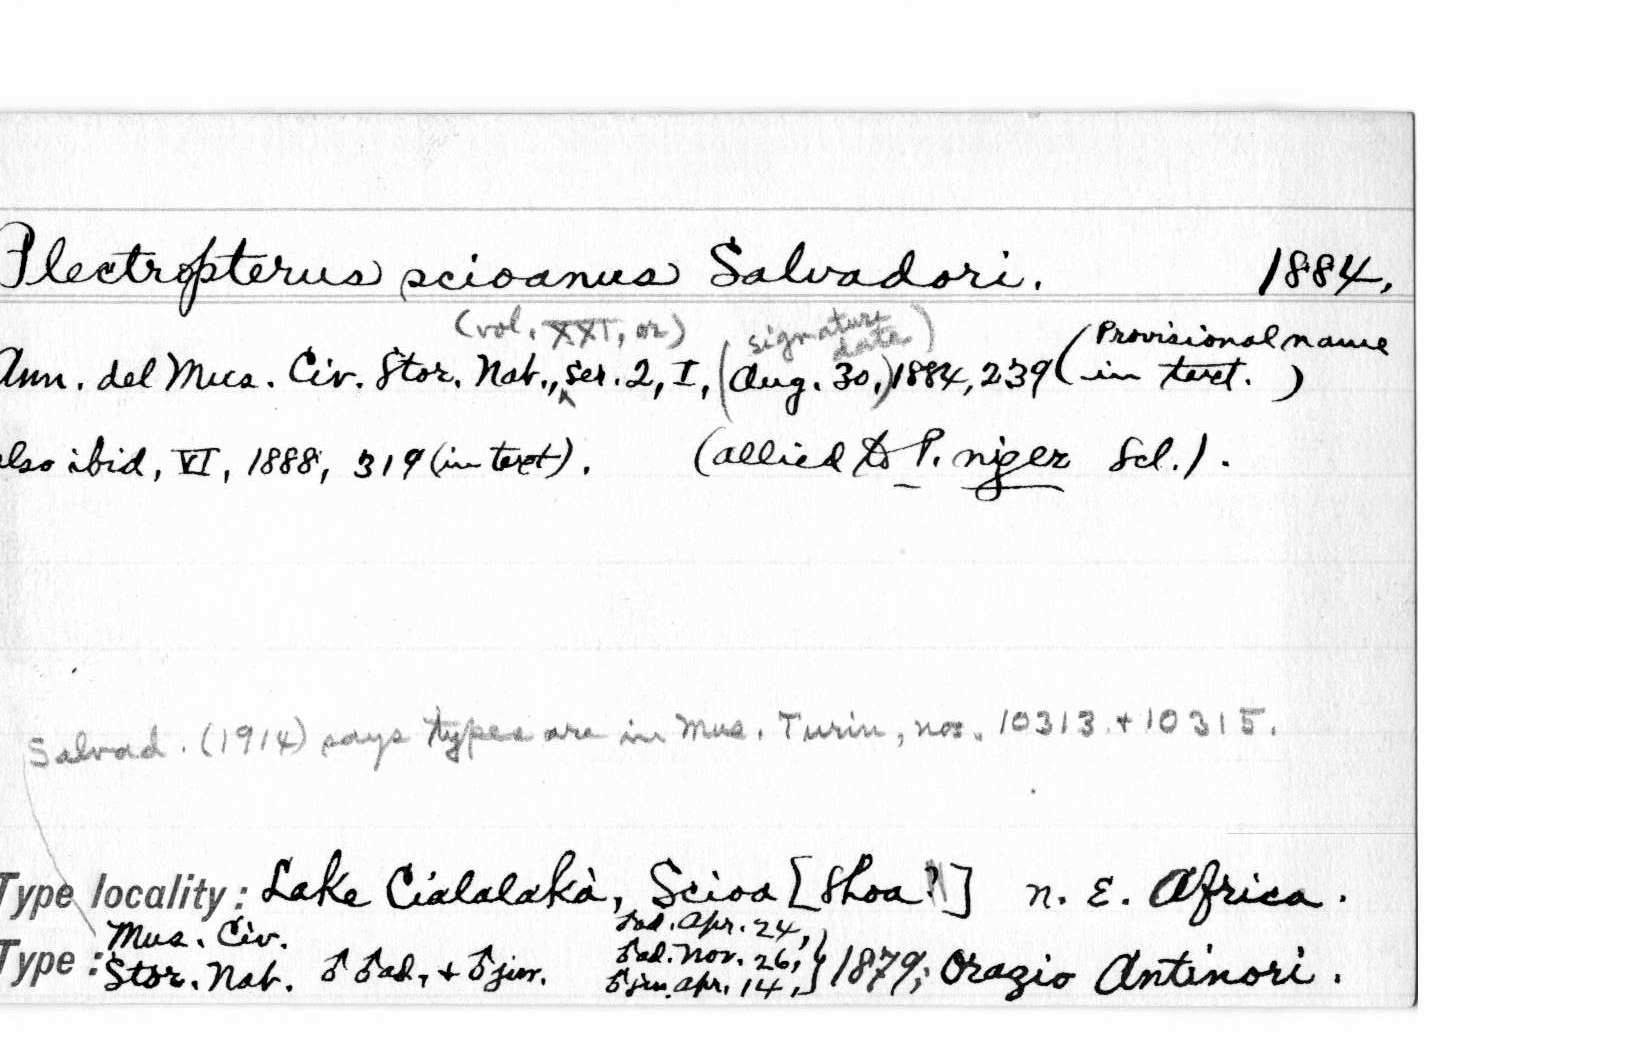 Plectropterus scioanus Salvadori. 1884.
(vol. XXI, or) (signature date)
Ann. del Mus. Civ. Stor. Nat., ser. 2, I, (Aug. 30,) 1884, 239 (Provisional name in text.)
also ibid, VI, 1888, 319 (in text). (allied to P. niger Scl.).
Salvad. (1914) says types are in Mus. Turin, nos. 10313 + 10315.
Type locality: Lake Cialalakà, Scioa [Shoa?] N. E. Africa.
Type: Mus. Civ. Stor. Nat. ♂ ♂ ad, + ♂ juv. ♂ad. Apr. 24, ♂ad. Nov. 26, ♂juv. Apr. 14,} 1879; Orazio Antinori.